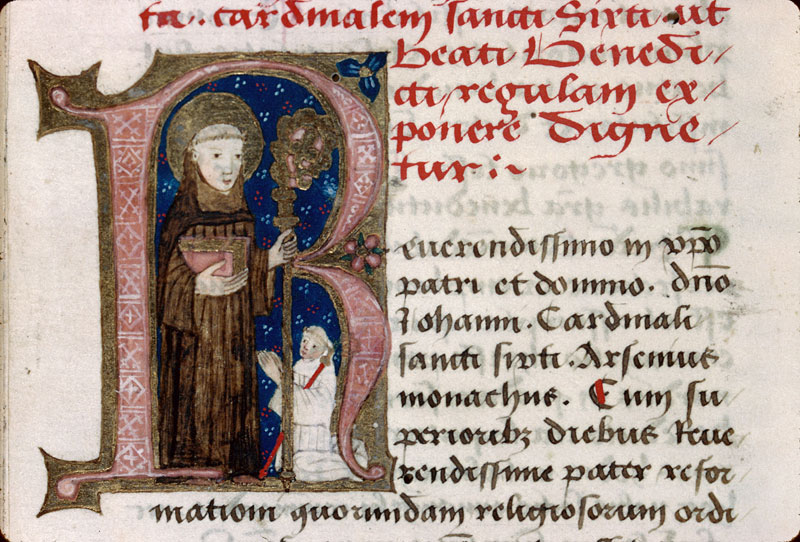 ta. cardinalem sancti Sixti ut
beati Benedi/
cti regulam ex/
ponere digne/
tur:~
Reuerendissimo in xpo
patri et domino. dño
Johanni. Cardinali
sancti sixti. Arsenius
monachus. Cum su
perioribz diebus Reue
rendissime pater refor
mationi quorundam religiosorum ordi